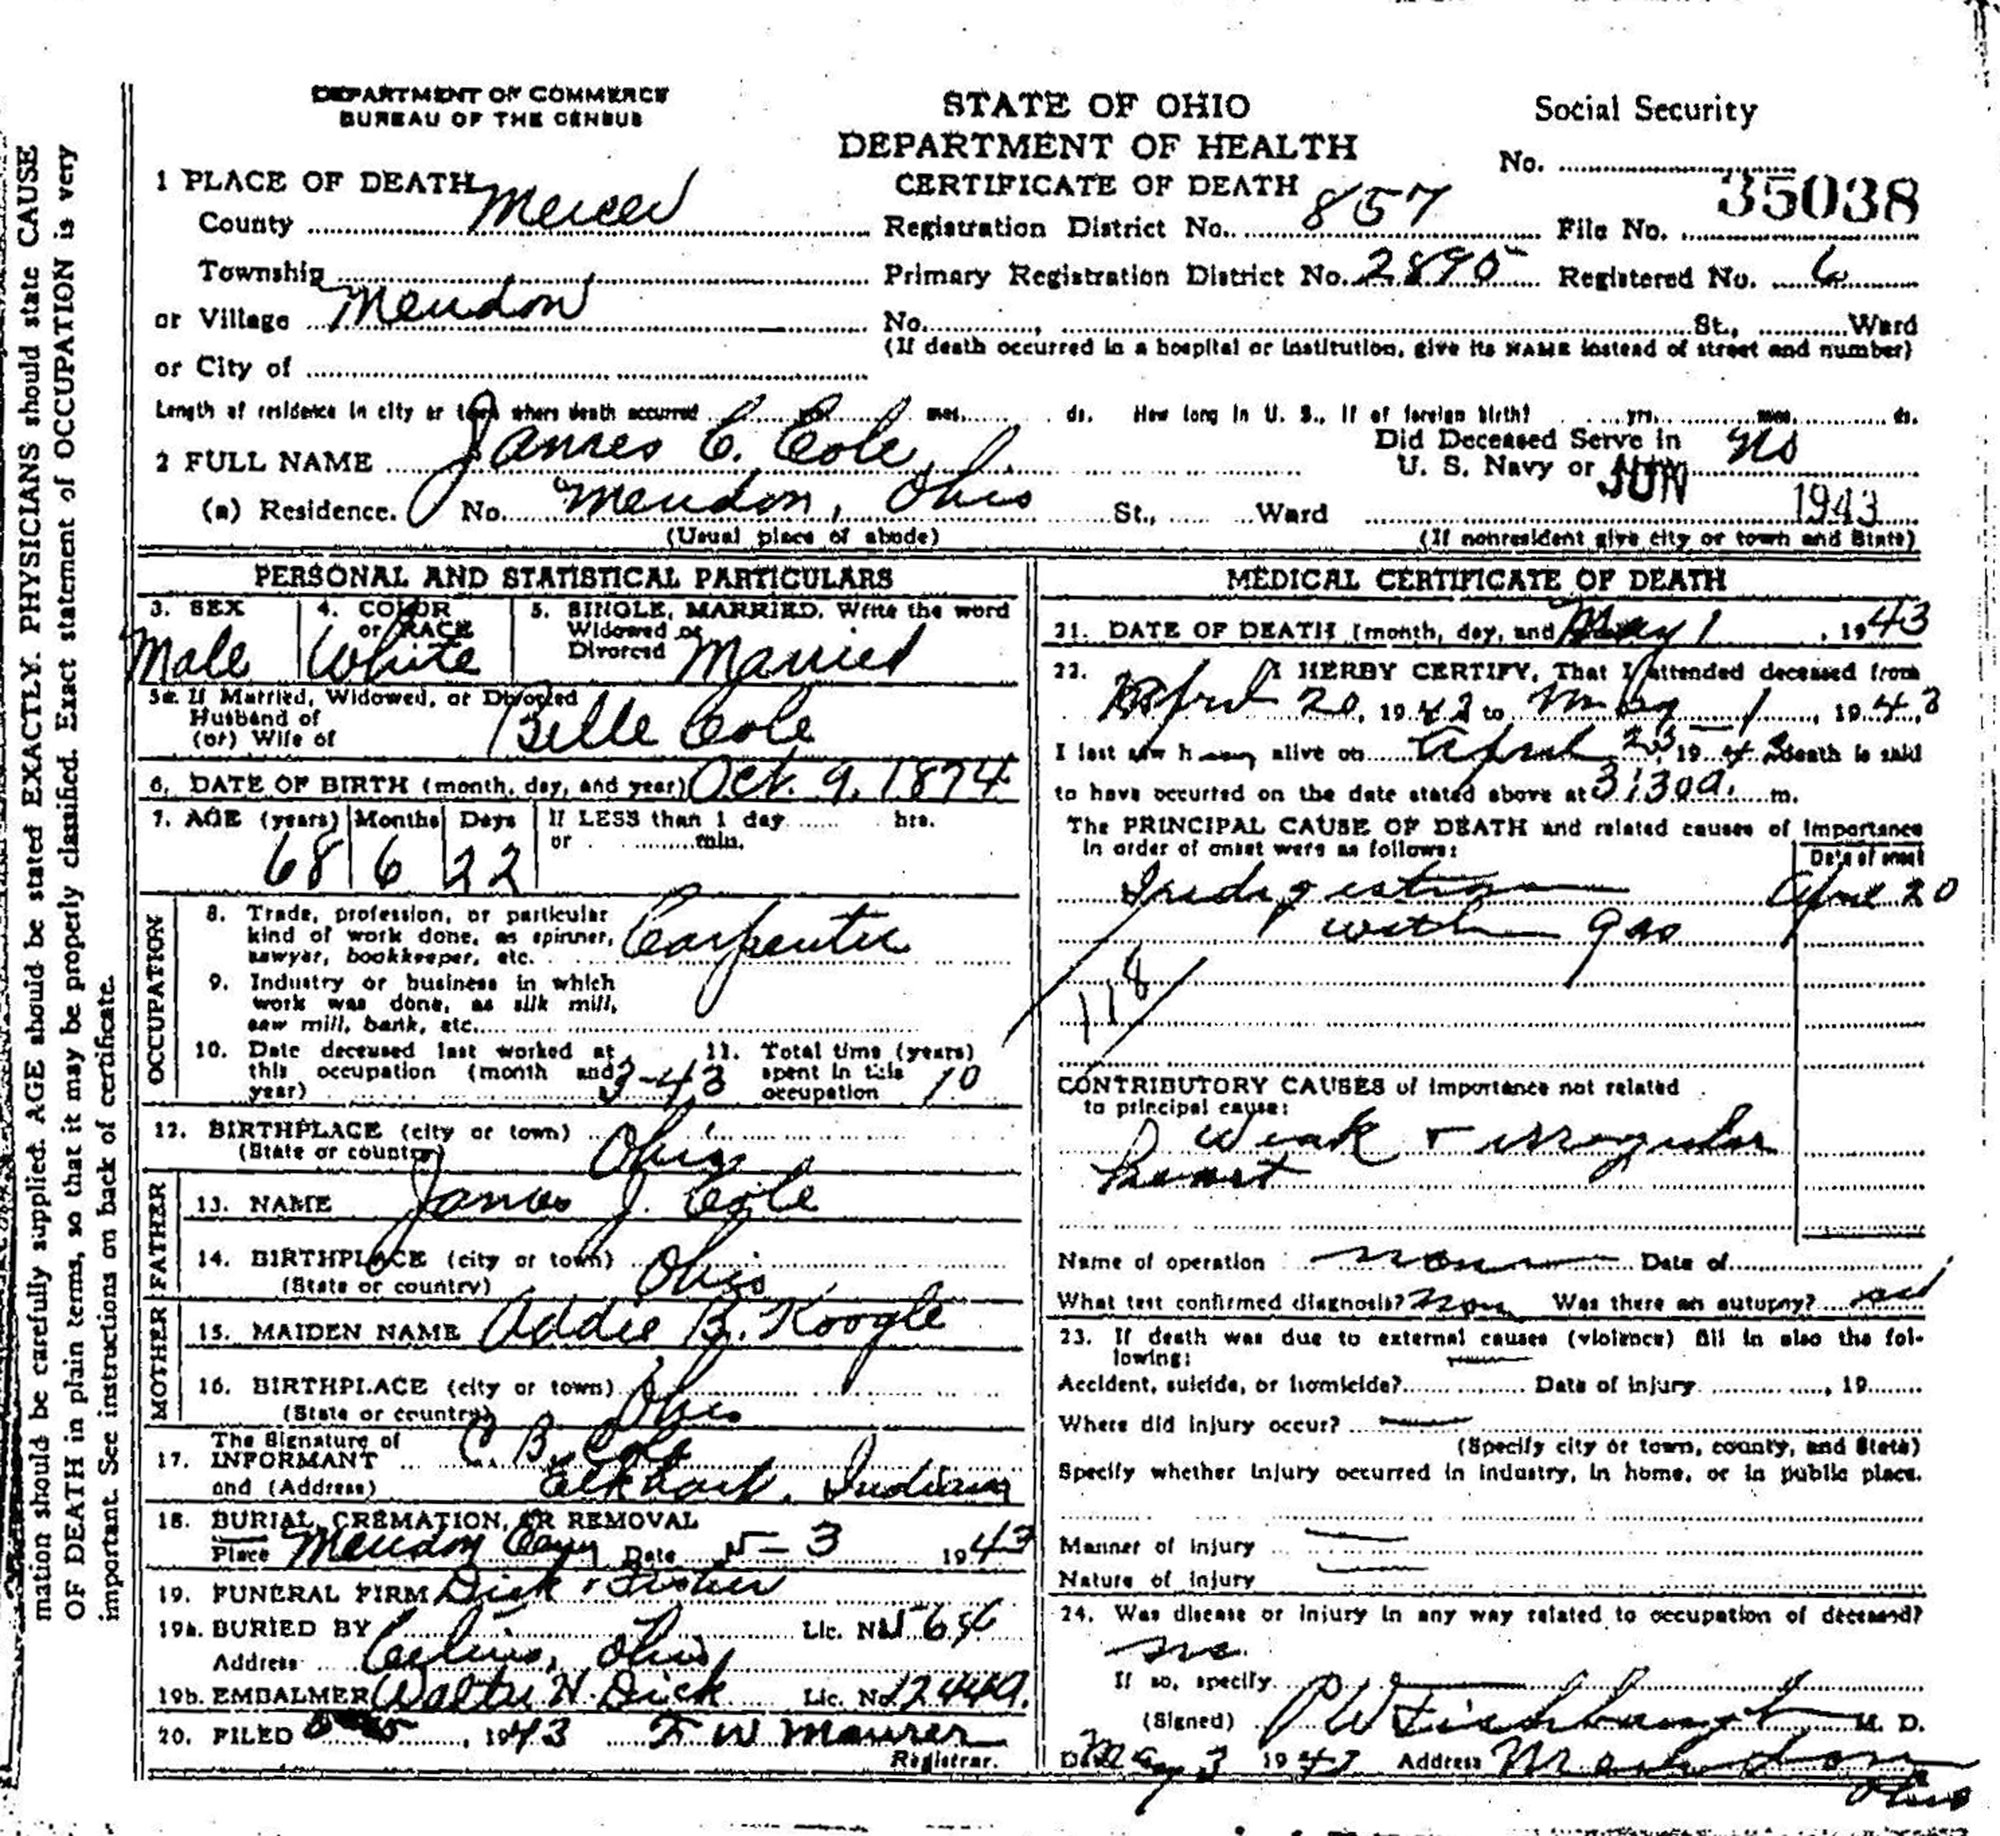 mation should be carefully supplied. AGE should be stated EXACTLY. PHYSICIANS should state CAUSE
OF DEATH in plain terms, so that it may be properly classified. Exact statement of OCCUPATION is very
important. See instructions on back of certificate.
DEPARTMENT OF COMMERCE
BUREAU OF THE CENSUS
STATE OF OHIO
DEPARTMENT OF HEALTH
CERTIFICATE OF DEATH
Social Security
No.
1 PLACE OF DEATH
County Mercer Registration District No. 857 File No. 35038
Township Primary Registration District No. 2895 Registered No. 6
or Village Mendon No. St., Ward
(If death occurred in a hospital or institution, give its NAME instead of street and number)
or City of
Length of residence in city or town where death occurred yrs. mos. ds. How long in U. S., if of foreign birth? yrs. mos. ds.
2 FULL NAME James C. Cole Did Deceased Serve in
U. S. Navy or Army No
JUN 1943
(a) Residence. No. Mendon, Ohio St., Ward
(Usual place of abode) (If nonresident give city or town and State)
PERSONAL AND STATISTICAL PARTICULARS
3. SEX Male
4. COLOR or RACE White
5. SINGLE, MARRIED, Write the word
Widowed or
Divorced Married
5a. If Married, Widowed, or Divorced
Husband of
(or) Wife of Belle Cole
6. DATE OF BIRTH (month, day, and year) Oct. 9, 1874
7. AGE (years) Months Days If LESS than 1 day hrs.
or min.
68 6 22
OCCUPATION
8. Trade, profession, or particular
kind of work done, as spinner,
sawyer, bookkeeper, etc. Carpenter
9. Industry or business in which
work was done, as silk mill,
saw mill, bank, etc.
10. Date deceased last worked at
this occupation (month and
year) 3-43
11. Total time (years)
spent in this
occupation 10
12. BIRTHPLACE (city or town)
(State or country) Ohio
FATHER
13. NAME James J. Cole
14. BIRTHPLACE (city or town)
(State or country) Ohio
MOTHER
15. MAIDEN NAME Addie B. Koogle
16. BIRTHPLACE (city or town)
(State or country) Ohio
17. The Signature of
INFORMANT C. B. Cole
and (Address) Elkhart, Indiana
18. BURIAL, CREMATION, OR REMOVAL
Place Mendon Cem Date 5-3 1943
19. FUNERAL FIRM Dick & Fisher
19a. BURIED BY Lic. No.
Address Celina, Ohio
19b. EMBALMER Walter H. Dick Lic. No. 2449.
20. FILED , 1943 F W Maurer
Registrar.
MEDICAL CERTIFICATE OF DEATH
21. DATE OF DEATH (month, day, and May 1, 1943
22. I HERBY CERTIFY, That I attended deceased from
April 20, 1943 to May 1, 1943
I last saw h alive on April 23, 1943 death is said
to have occurred on the date stated above at 3:30 a. m.
The PRINCIPAL CAUSE OF DEATH and related causes of Importance
in order of onset were as follows:
Date of onset
Indigestion April 20
with gas
118
CONTRIBUTORY CAUSES of importance not related
to principal cause:
Weak & irregular
heart
Name of operation none Date of
What test confirmed diagnosis? non Was there an autopsy? no
23. If death was due to external causes (violence) fill in also the fol-
lowing:
Accident, suicide, or homicide? Date of injury , 19
Where did injury occur?
(Specify city or town, county, and State)
Specify whether injury occurred in industry, in home, or in public place.
Manner of injury
Nature of injury
24. Was disease or injury in any way related to occupation of deceased?
no
If so, specify
(Signed) P W Fishbaugh M. D.
Date May 3 1943 Address Mendon
Ohio